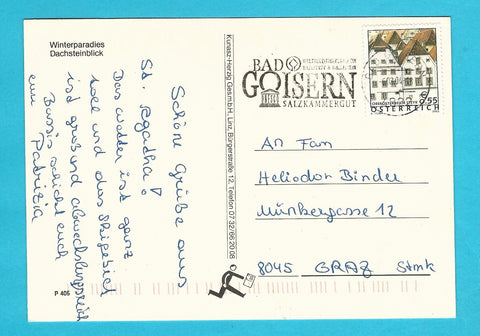 Winterparadies
Dachsteinblick
Schöne Grüße aus
St. Agatha!
Das Wetter ist ganz
toll und das Skigebiet
ist groß und abwechslungsreich
Bussis schickt euch
eure
Patrizia
P 405
Kunasz-Herzig Ges.m.b.H., Linz, Bürgerstraße 12, Telefon 07 32/66 20 08
BAD
GOISERN
SALZKAMMERGUT
€ 0,55
ÖSTERREICH
An Fam
Heliodor Binder
Münzbergasse 12
8045 GRAZ Stmk